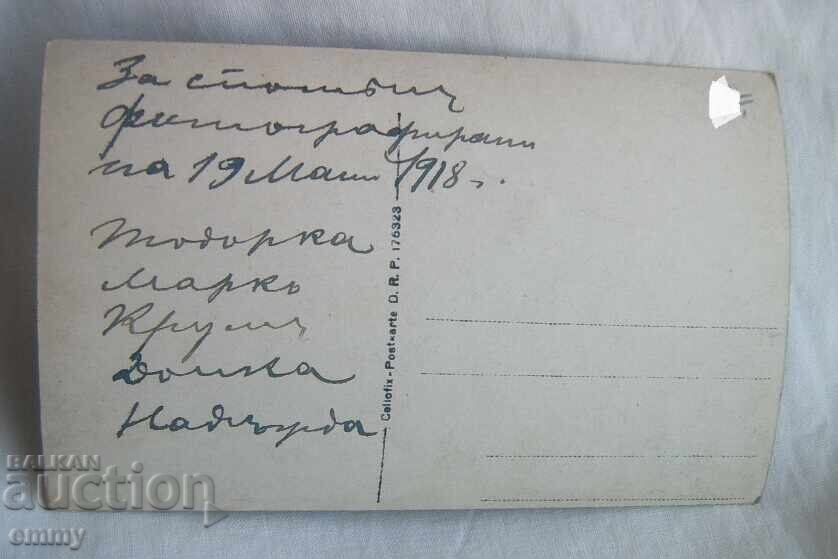 За споменъ
фотографирани
на 19 Май 1918 г.
Тодорка
Марко
Крумъ
Донка
Cellofix-Postkarte D. R. P. 176323
BALKAN
auction
emmy